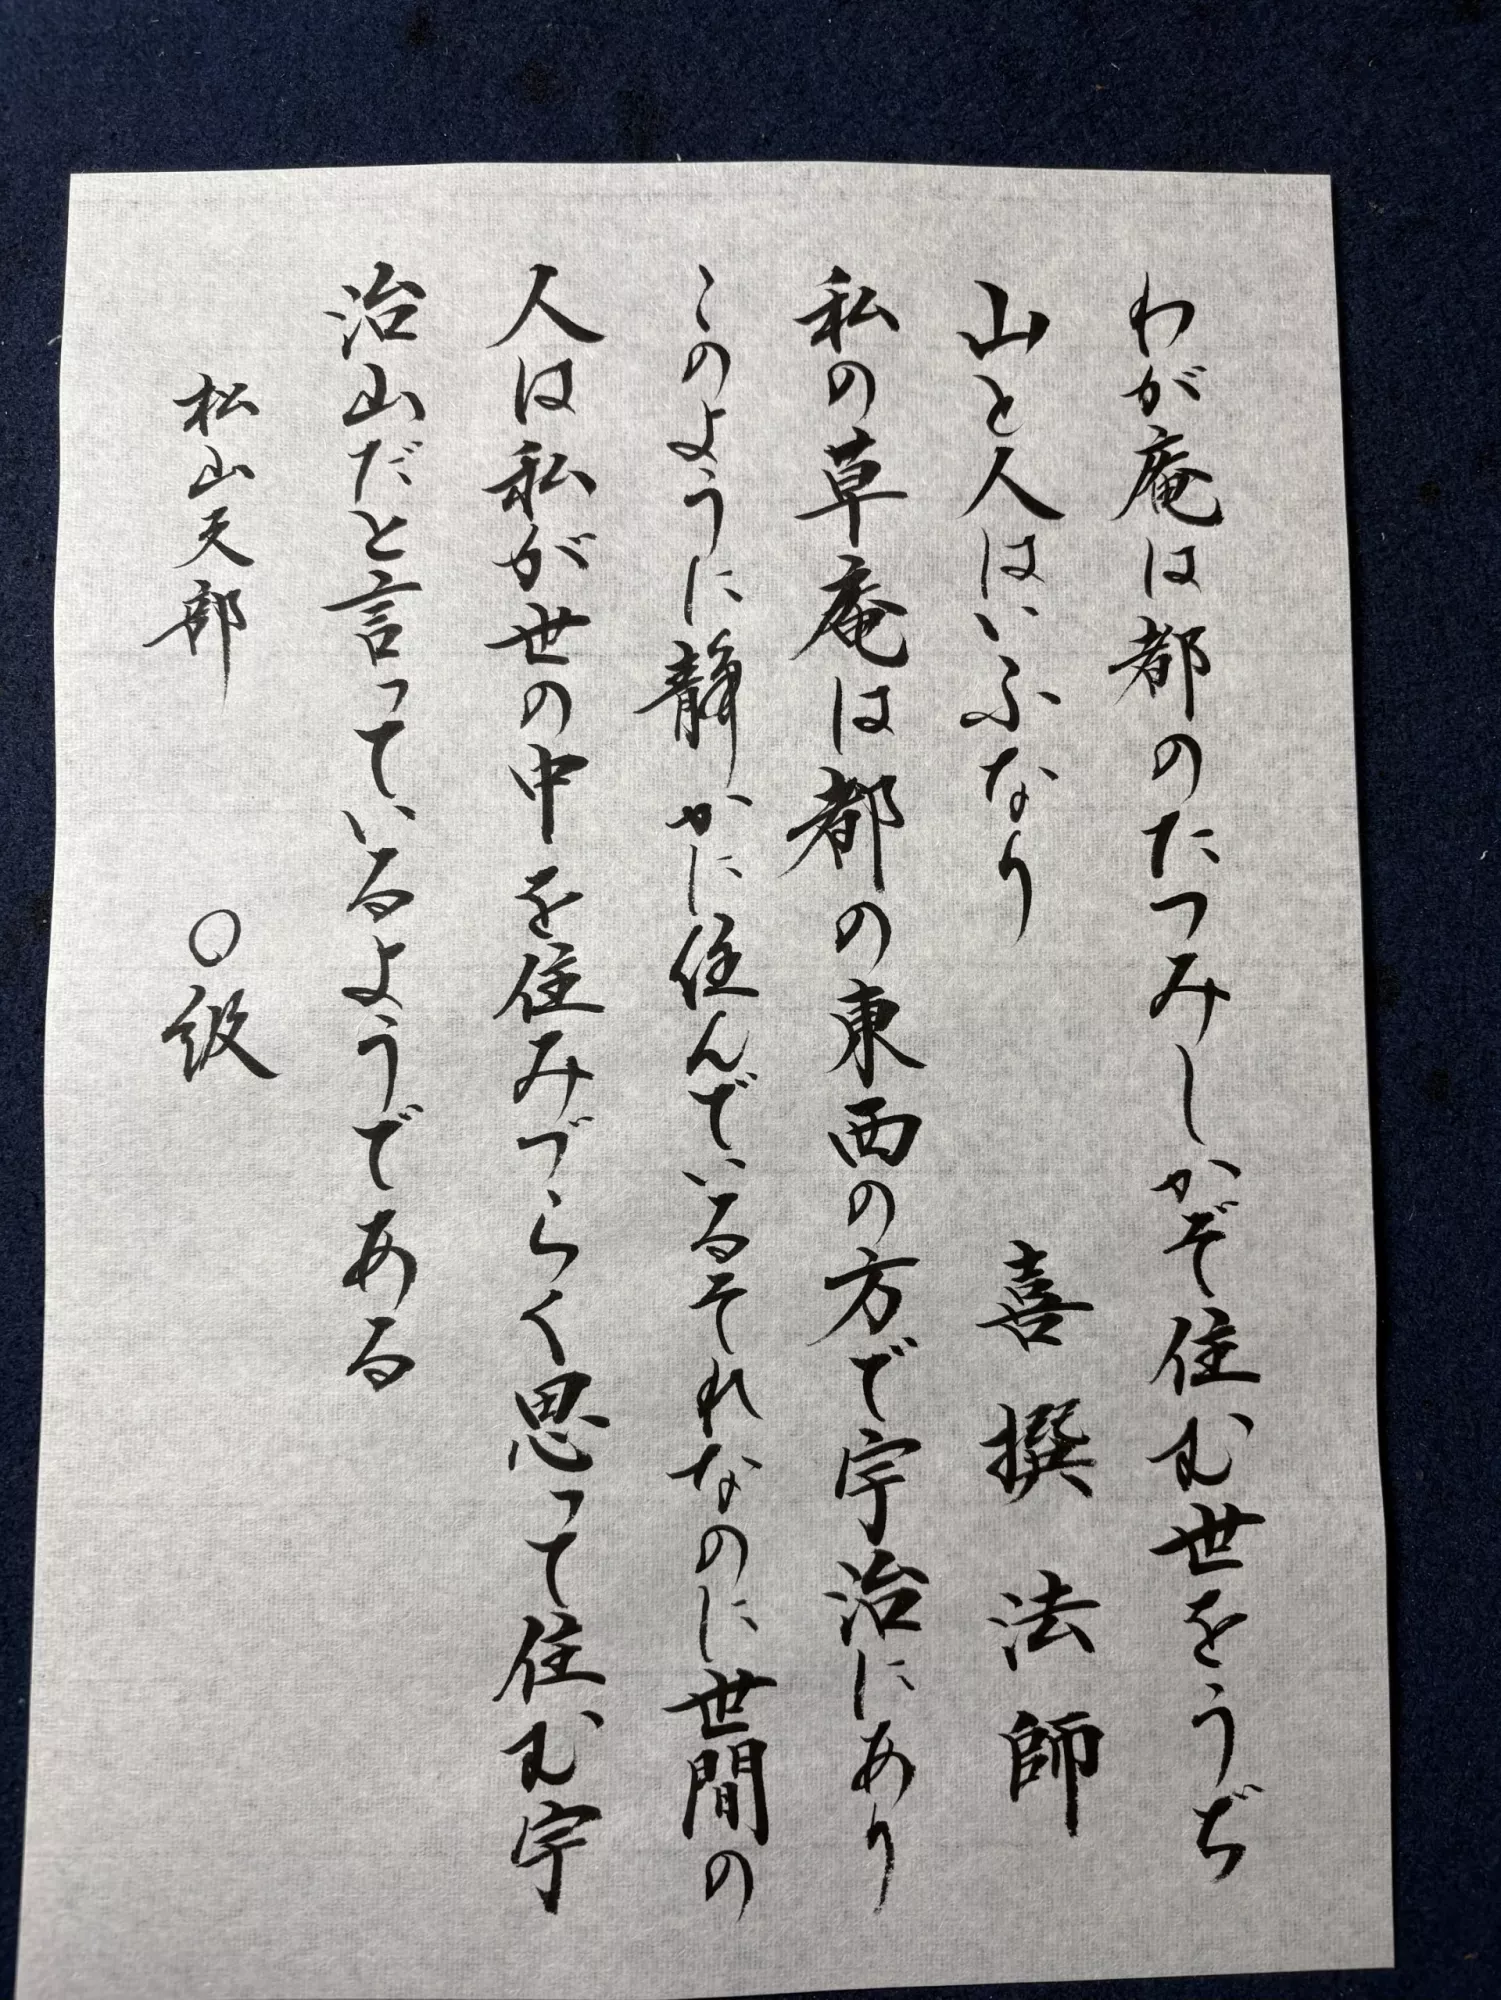 わが庵は都のたつみしかぞ住む世をうぢ
山と人はいふなり　喜撰法師
私の草庵は都の東西の方で宇治にあり
このように静かに住んでいるそれなのに世間の
人は私が世の中を住みづらく思って住む宇
治山だと言っているようである
松山天部　〇級